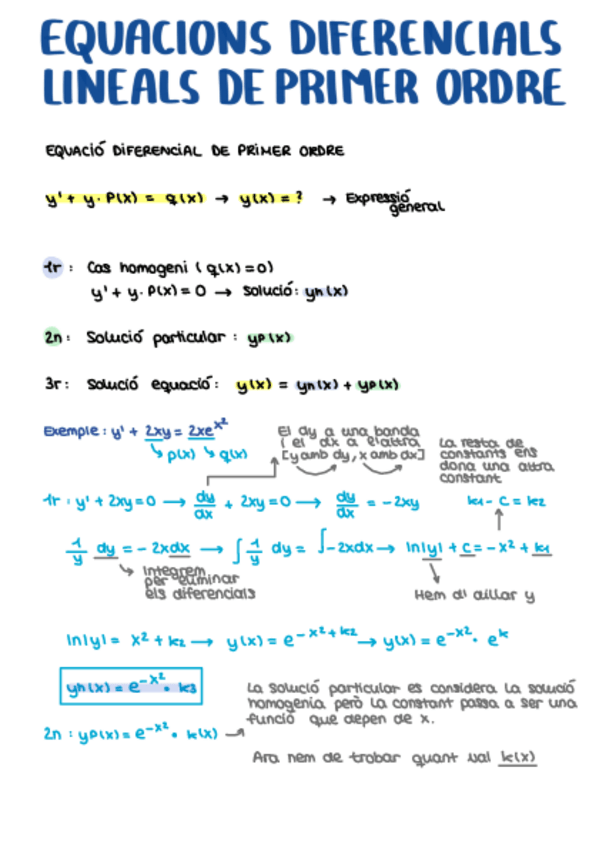 EQUACIONS DIFERENCIALS
LINEALS DE PRIMER ORDRE
EQUACIÓ DIFERENCIAL DE PRIMER ORDRE
y' + y · P(x) = q(x) → y(x) = ? → Expressió general
1r : Cas homogeni ( q(x) = 0)
y' + y · P(x) = 0 → solució : yh(x)
2n : Solució particular : yp(x)
3r : Solució equació : y(x) = yh(x) + yp(x)
Exemple : y' + 2xy = 2xe^x²
p(x) q(x)
El dy a una banda
i el dx a l'altra
[y amb dy, x amb dx]
La resta de
constants ens
dona una altra
constant
1r : y' + 2xy = 0 → dy/dx + 2xy = 0 → dy/dx = -2xy
k1 - C = k2
1/y dy = - 2xdx → ∫ 1/y dy = ∫-2xdx → ln|y| + C = -x² + k1
Integrem
per eliminar
els diferencials
Hem d' aïllar y
ln|y| = x² + k2 → y(x) = e^-x²+k2 → y(x) = e^-x² · e^k
yh(x) = e^-x² · k3
La solució particular es considera la solució
homogènia però la constant passa a ser una
funció que depen de x.
2n : yp(x) = e^-x² · k(x)
Ara nem de trobar quant val k(x)